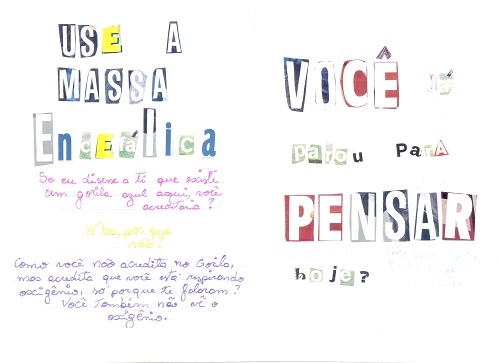 USE A
MASSA
Encefálica
Se eu disesse a ti que existe
um gorila azul aqui, você
acreditaria?
Mas, por que
não?
Como você não acredita no Gorila,
mas acredita que você está respirando
oxigênio, só porque te falaram?
Você Também não vê o
oxigênio.
VOCÊ Já
parou Para
PENSAR
hoje?